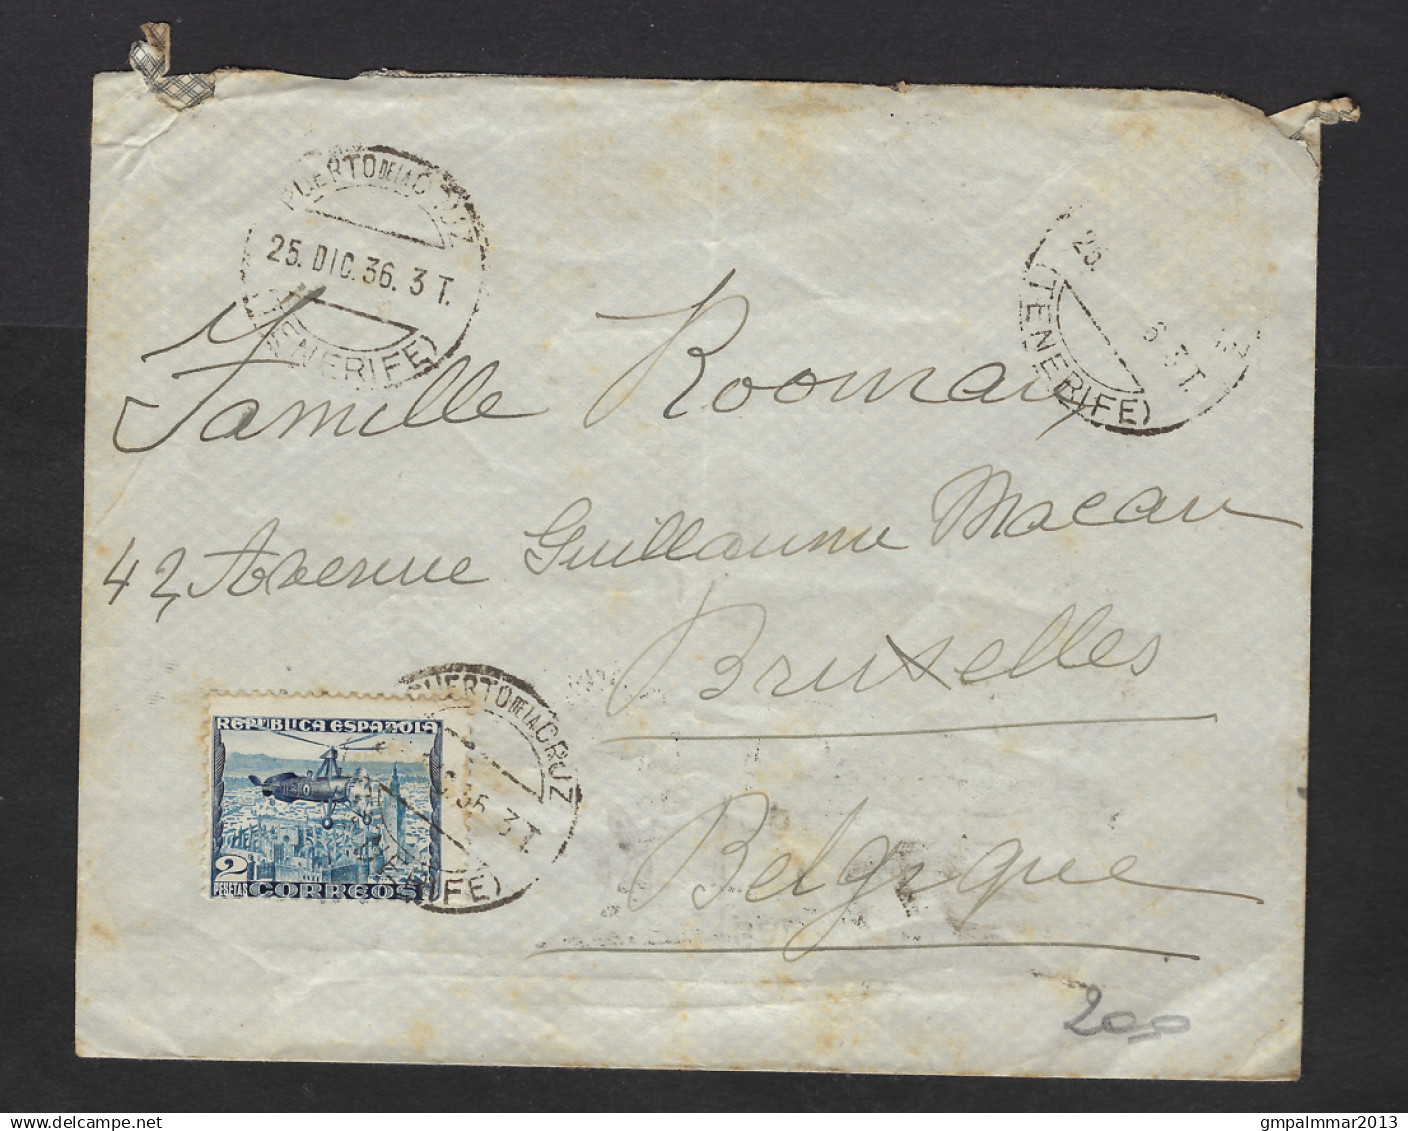 PUERTO DE LA CRUZ
25. DIC. 36. 3 T.
(TENERIFE)
25. 6. 3 T.
(TENERIFE)
Famille Rooman
42, Avenue Guillaume Macau
Bruxelles
Belgique
REPUBLICA ESPAÑOLA
2 PESETAS CORREOS
PUERTO DE LA CRUZ
C. 36. 3 T.
200
delcampe.net
gmpalmmar2013